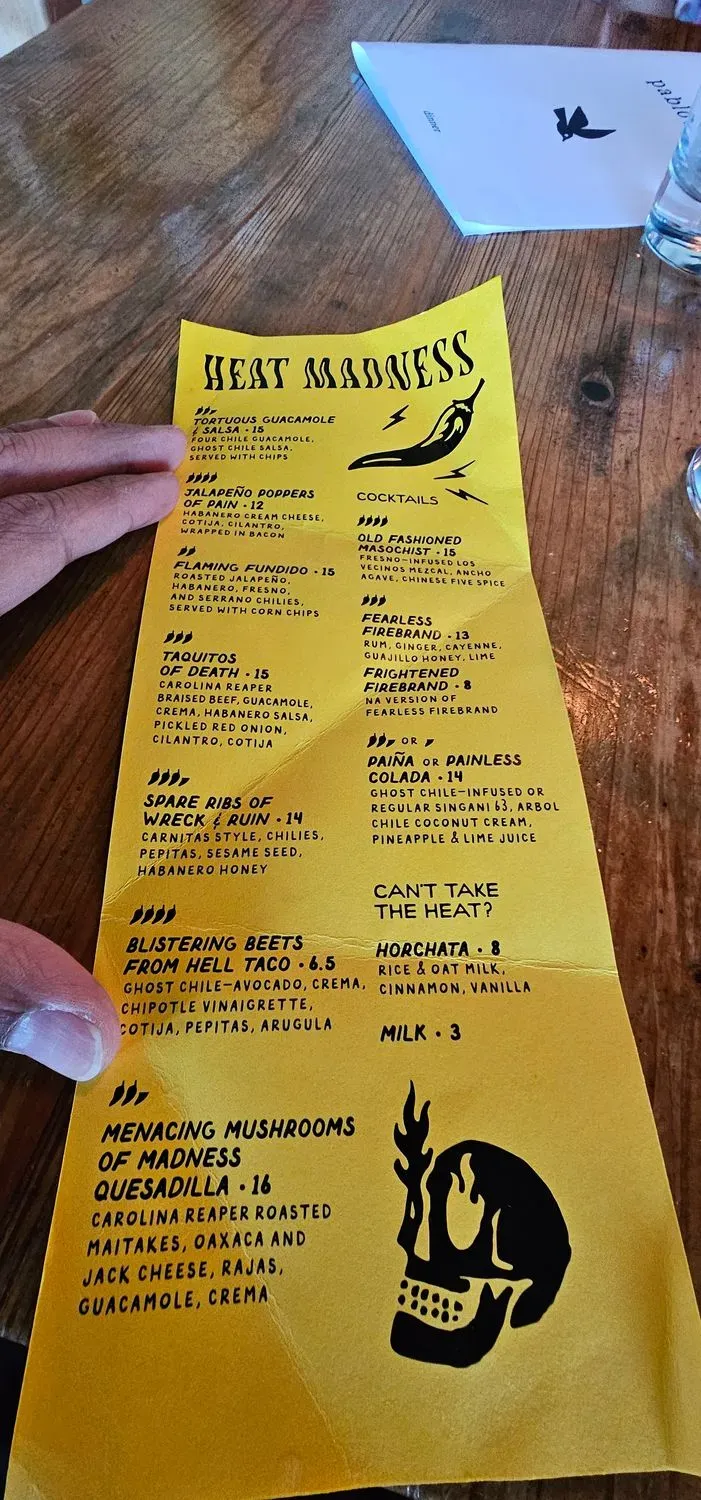 dinner
pablo
HEAT MADNESS
TORTUOUS GUACAMOLE
& SALSA • 15
FOUR CHILE GUACAMOLE,
GHOST CHILE SALSA,
SERVED WITH CHIPS
JALAPEÑO POPPERS
OF PAIN • 12
HABANERO CREAM CHEESE,
COTIJA, CILANTRO,
WRAPPED IN BACON
FLAMING FUNDIDO • 15
ROASTED JALAPEÑO,
HABANERO, FRESNO,
AND SERRANO CHILIES,
SERVED WITH CORN CHIPS
TAQUITOS
OF DEATH • 15
CAROLINA REAPER
BRAISED BEEF, GUACAMOLE,
CREMA, HABANERO SALSA,
PICKLED RED ONION,
CILANTRO, COTIJA
SPARE RIBS OF
WRECK & RUIN • 14
CARNITAS STYLE, CHILIES,
PEPITAS, SESAME SEED,
HABANERO HONEY
BLISTERING BEETS
FROM HELL TACO • 6.5
GHOST CHILE-AVOCADO, CREMA,
CHIPOTLE VINAIGRETTE,
COTIJA, PEPITAS, ARUGULA
MENACING MUSHROOMS
OF MADNESS
QUESADILLA • 16
CAROLINA REAPER ROASTED
MAITAKES, OAXACA AND
JACK CHEESE, RAJAS,
GUACAMOLE, CREMA
COCKTAILS
OLD FASHIONED
MASOCHIST • 15
FRESNO-INFUSED LOS
VECINOS MEZCAL, ANCHO
AGAVE, CHINESE FIVE SPICE
FEARLESS
FIREBRAND • 13
RUM, GINGER, CAYENNE,
GUAJILLO HONEY, LIME
FRIGHTENED
FIREBRAND • 8
NA VERSION OF
FEARLESS FIREBRAND
OR
PAIÑA OR PAINLESS
COLADA • 14
GHOST CHILE-INFUSED OR
REGULAR SINGANI 63, ARBOL
CHILE COCONUT CREAM,
PINEAPPLE & LIME JUICE
CAN'T TAKE
THE HEAT?
HORCHATA • 8
RICE & OAT MILK,
CINNAMON, VANILLA
MILK • 3